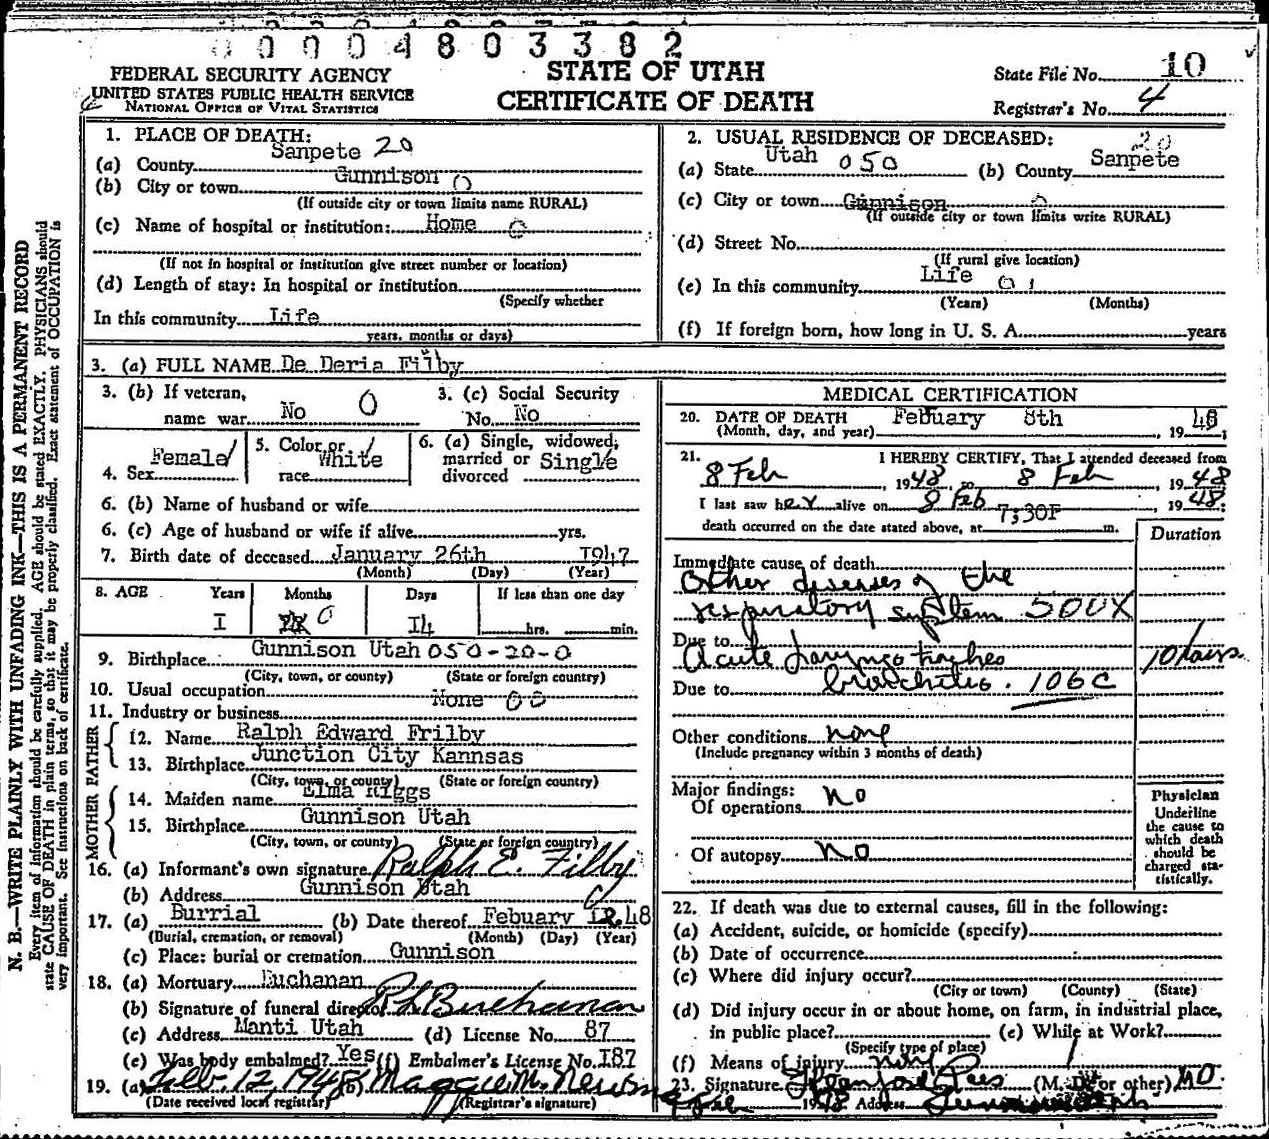 0 0 0 0 4 8 0 3 3 8 2
FEDERAL SECURITY AGENCY
UNITED STATES PUBLIC HEALTH SERVICE
NATIONAL OFFICE OF VITAL STATISTICS
STATE OF UTAH
CERTIFICATE OF DEATH
State File No. 10
Registrar's No. 4
N. B.—WRITE PLAINLY WITH UNFADING INK—THIS IS A PERMANENT RECORD
Every item of information should be carefully supplied. AGE should be stated EXACTLY. PHYSICIANS should
state CAUSE OF DEATH in plain terms, so that it may be properly classified. Exact statement of OCCUPATION is
very important. See instructions on back of certificate.
1. PLACE OF DEATH:
(a) County Sanpete 20
(b) City or town Gunnison 0
(If outside city or town limits name RURAL)
(c) Name of hospital or institution: Home 0
(If not in hospital or institution give street number or location)
(d) Length of stay: In hospital or institution
(Specify whether
In this community Life
years, months or days)
2. USUAL RESIDENCE OF DECEASED:
(a) State Utah 050 (b) County Sanpete 20
(c) City or town Gunnison 0
(If outside city or town limits write RURAL)
(d) Street No.
(If rural give location)
(e) In this community Life 01
(Years) (Months)
(f) If foreign born, how long in U. S. A. years
3. (a) FULL NAME De Deria Filby
3. (b) If veteran, name war No 0
3. (c) Social Security No. No
4. Sex Female
5. Color or race White
6. (a) Single, widowed, married or divorced Single
6. (b) Name of husband or wife
6. (c) Age of husband or wife if alive yrs.
7. Birth date of deceased January 26th 1947
(Month) (Day) (Year)
8. AGE Years Months Days If less than one day
I 0 I4 hrs. min.
9. Birthplace Gunnison Utah 050-20-0
(City, town, or county) (State or foreign country)
10. Usual occupation None 00
11. Industry or business
FATHER
12. Name Ralph Edward Frilby
13. Birthplace Junction City Kannsas
(City, town, or county) (State or foreign country)
MOTHER
14. Maiden name Elma Riggs
15. Birthplace Gunnison Utah
(City, town, or county) (State or foreign country)
16. (a) Informant's own signature Ralph E. Filby
(b) Address Gunnison Utah
17. (a) Burrial (b) Date thereof Febuary 12 48
(Burial, cremation, or removal) (Month) (Day) (Year)
(c) Place: burial or cremation Gunnison
18. (a) Mortuary Buchanan
(b) Signature of funeral director Buchanan
(c) Address Manti Utah (d) License No. 87
(e) Was body embalmed? Yes (f) Embalmer's License No. I87
19. (a) Feb. 12, 1948 (b) Maggie M. Newman
(Date received local registrar) (Registrar's signature)
MEDICAL CERTIFICATION
20. DATE OF DEATH Febuary 8th, 1948;
(Month, day, and year)
21. I HEREBY CERTIFY, That I attended deceased from
8 Feb, 1948, to 8 Feb, 1948
I last saw her alive on 8 Feb, 1948;
death occurred on the date stated above, at 7;30P m.
Duration
Immediate cause of death
Other diseases of the
respiratory system 500X
Due to Acute Laryngo tracheo 10 hours
Due to bronchitis. 106C
Other conditions none
(Include pregnancy within 3 months of death)
Major findings:
Of operations No
Of autopsy No
Physician
Underline
the cause to
which death
should be
charged sta-
tistically.
22. If death was due to external causes, fill in the following:
(a) Accident, suicide, or homicide (specify)
(b) Date of occurrence
(c) Where did injury occur?
(City or town) (County) (State)
(d) Did injury occur in or about home, on farm, in industrial place,
in public place? (e) While at Work?
(Specify type of place)
(f) Means of injury none
23. Signature Rees (M. D. or other) MD
1948 Address